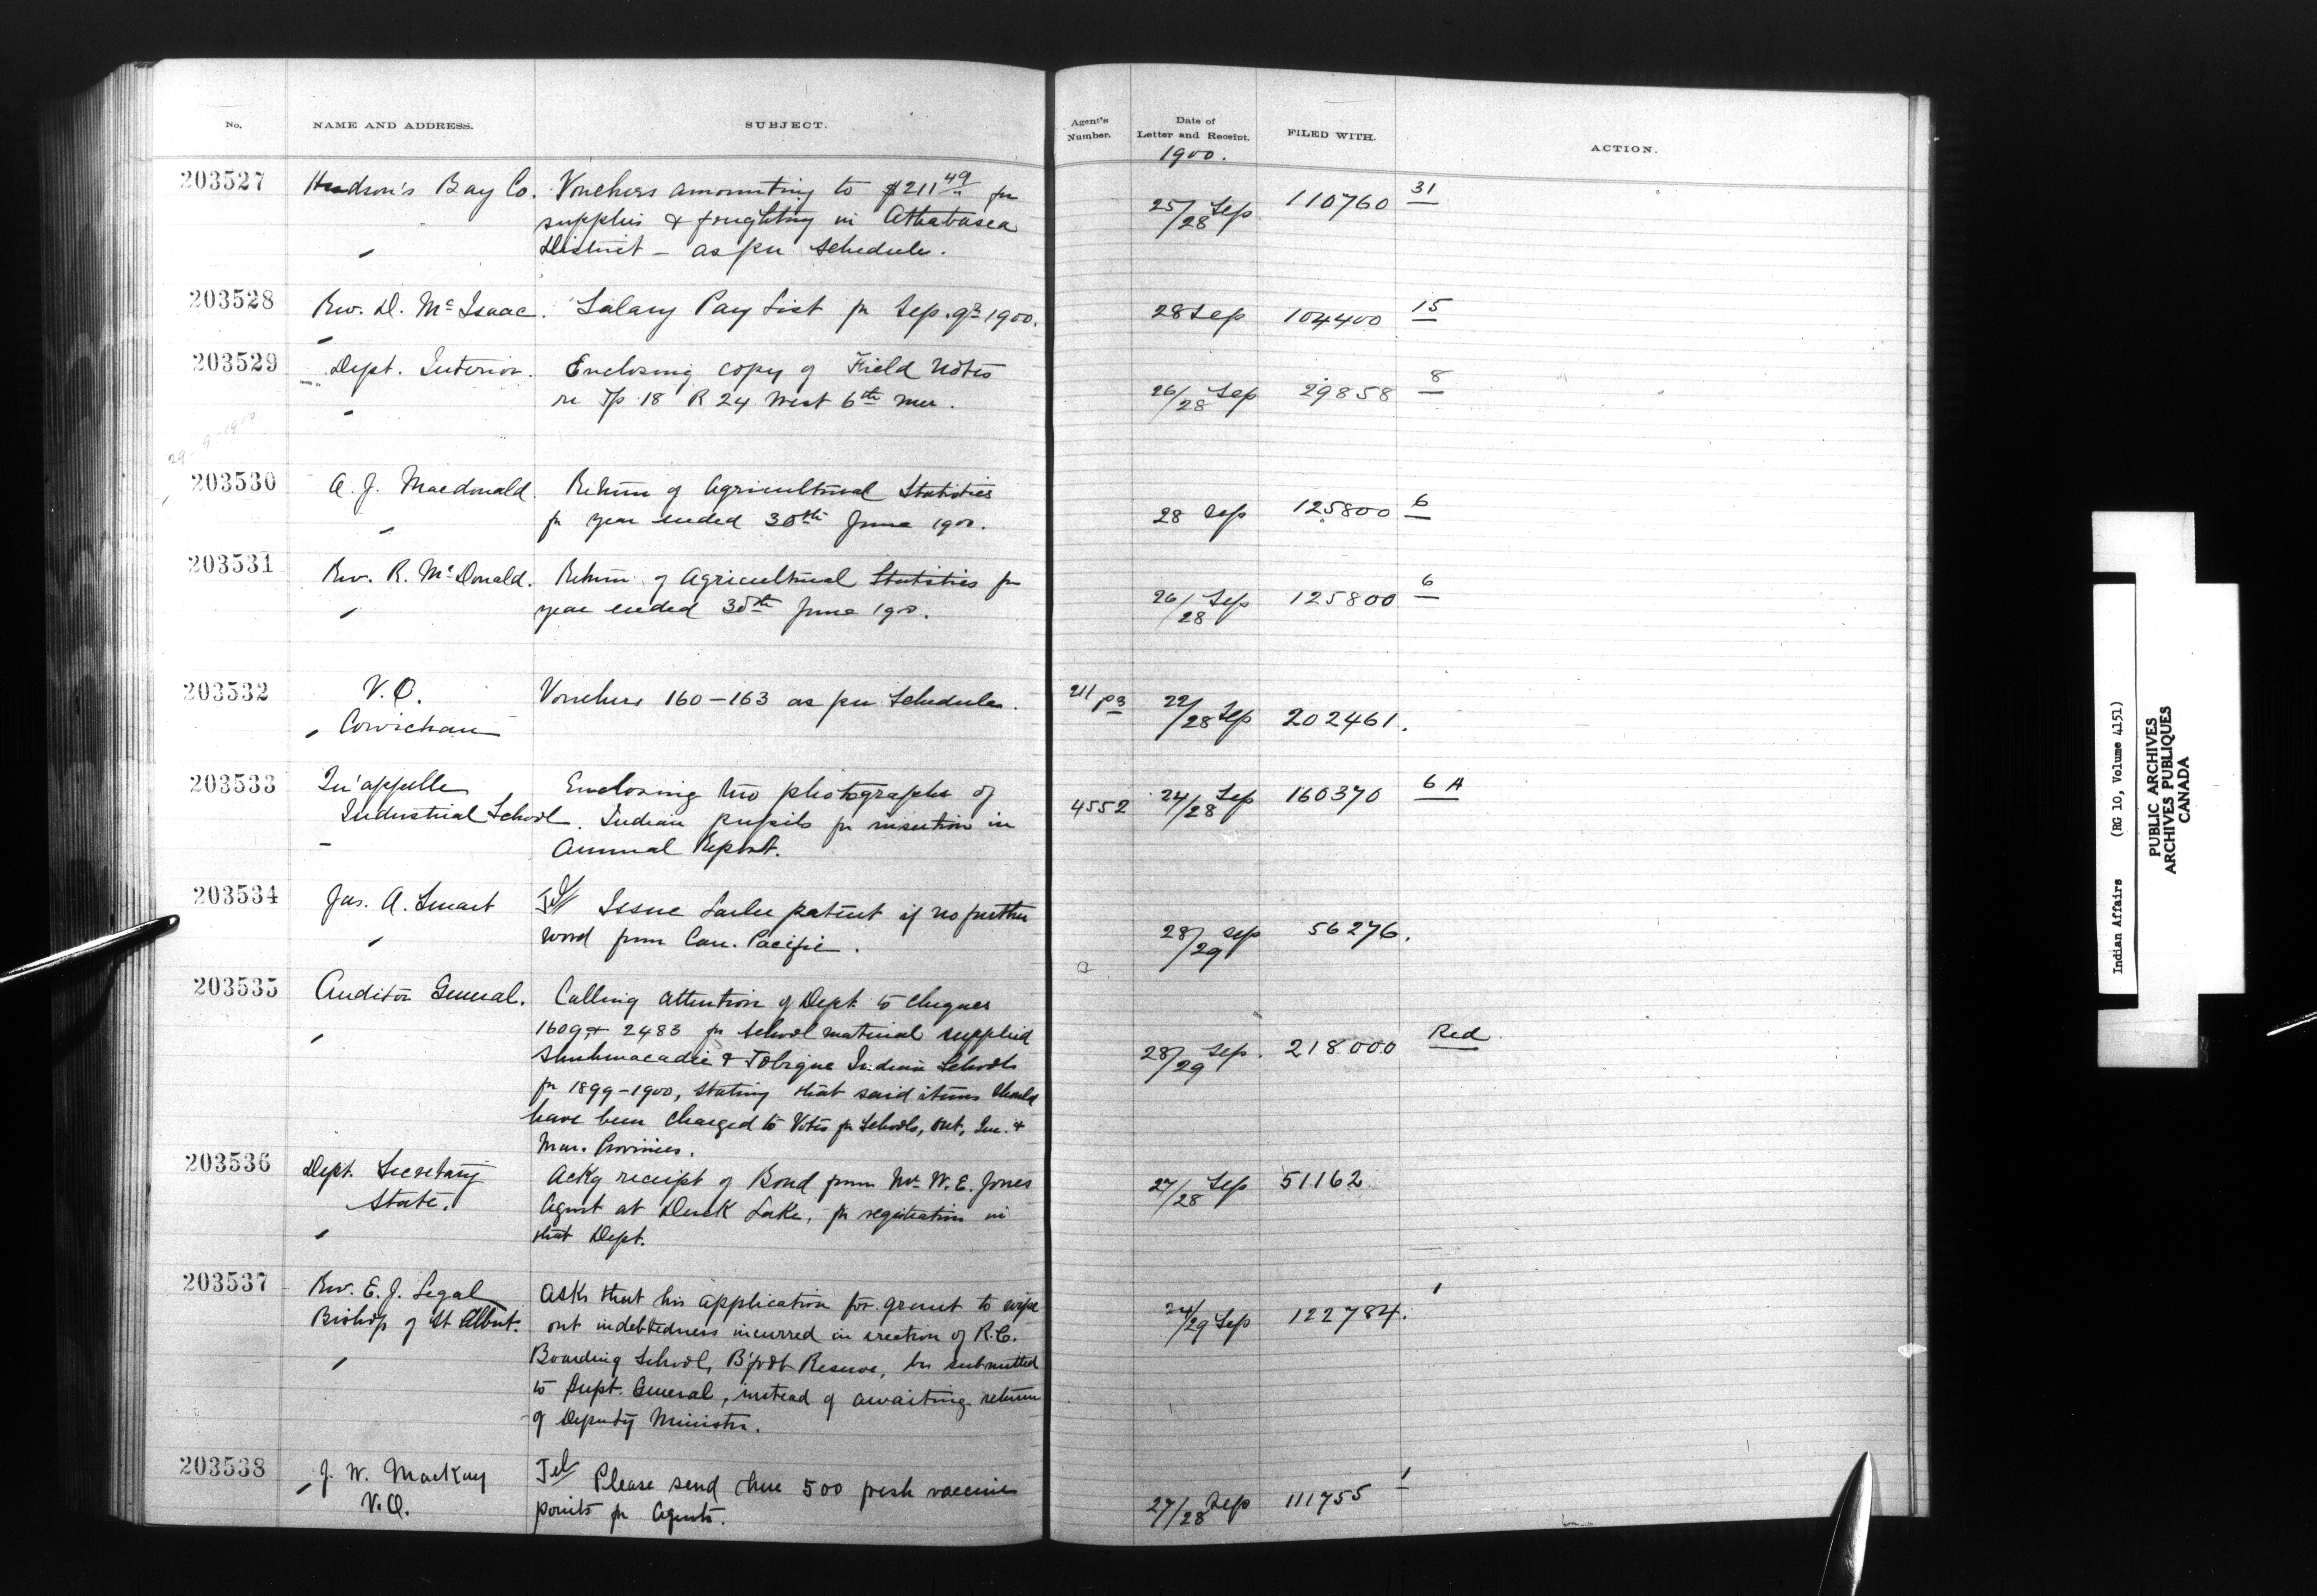 No. NAME AND ADDRESS. SUBJECT. Agent's Number. Date of Letter and Receipt. FILED WITH. ACTION.
1900.
203527 Hudson's Bay Co. Vouchers amounting to $211 49 for 25/28 Sep 110760 31
supplies & freighting in Athabasca
District – as per schedule.
203528 Rev. D. McIsaac. Salary Pay List for Sep. qr 1900. 28 Sep 104400 15
203529 Dept. Interior. Enclosing copy of Field Notes 26/28 Sep 29858 8
re Tp 18 R 24 West 6th Mer.
29-9-1900
203530 A. J. Macdonald. Return of Agricultural Statistics 28 Sep 125800 6
for year ended 30th June 1900.
203531 Rev. R. McDonald. Return of Agricultural Statistics for 26/28 Sep 125800 6
year ended 30th June 1900.
203532 V.O. Vouchers 160–163 as per Schedule. 211 22/28 Sep 202461.
Cowichan
203533 Qu'appelle Enclosing two photographs of 4552 24/28 Sep 160370 6 A
Industrial School. Indian pupils for insertion in
Annual Report.
203534 Jas. A. Smart Tel Issue patent if no further 28/29 Sep 56276.
word from Can. Pacific.
203535 Auditor General. Calling attention of Dept. to cheques 28/29 Sep. 218000 Red
1609 & 2483 for school material supplied
Shubenacadie & Tobique Indian Schools
for 1899–1900, stating that said items should
have been charged to Votes for Schools, Ont., Que. &
Mar. Provinces.
203536 Dept. Secretary Ackg receipt of Bond from Mr. W. E. Jones 27/28 Sep 51162
State. Agent at Duck Lake, for registration in
that Dept.
203537 Rev. E. J. Legal Asks that his application for grant to wipe 24/29 Sep 122784. 1
Bishop of St Albert. out indebtedness incurred in erection of R.C.
Boarding School, B'foot Reserve, be submitted
to Supt. General, instead of awaiting return
of Deputy Minister.
203538 J. W. MacKay Tel Please send here 500 fresh vaccine 27/28 Sep 111755 1
V.O. points for Agents.
Indian Affairs (RG 10, Volume 4151)
PUBLIC ARCHIVES
ARCHIVES PUBLIQUES
CANADA